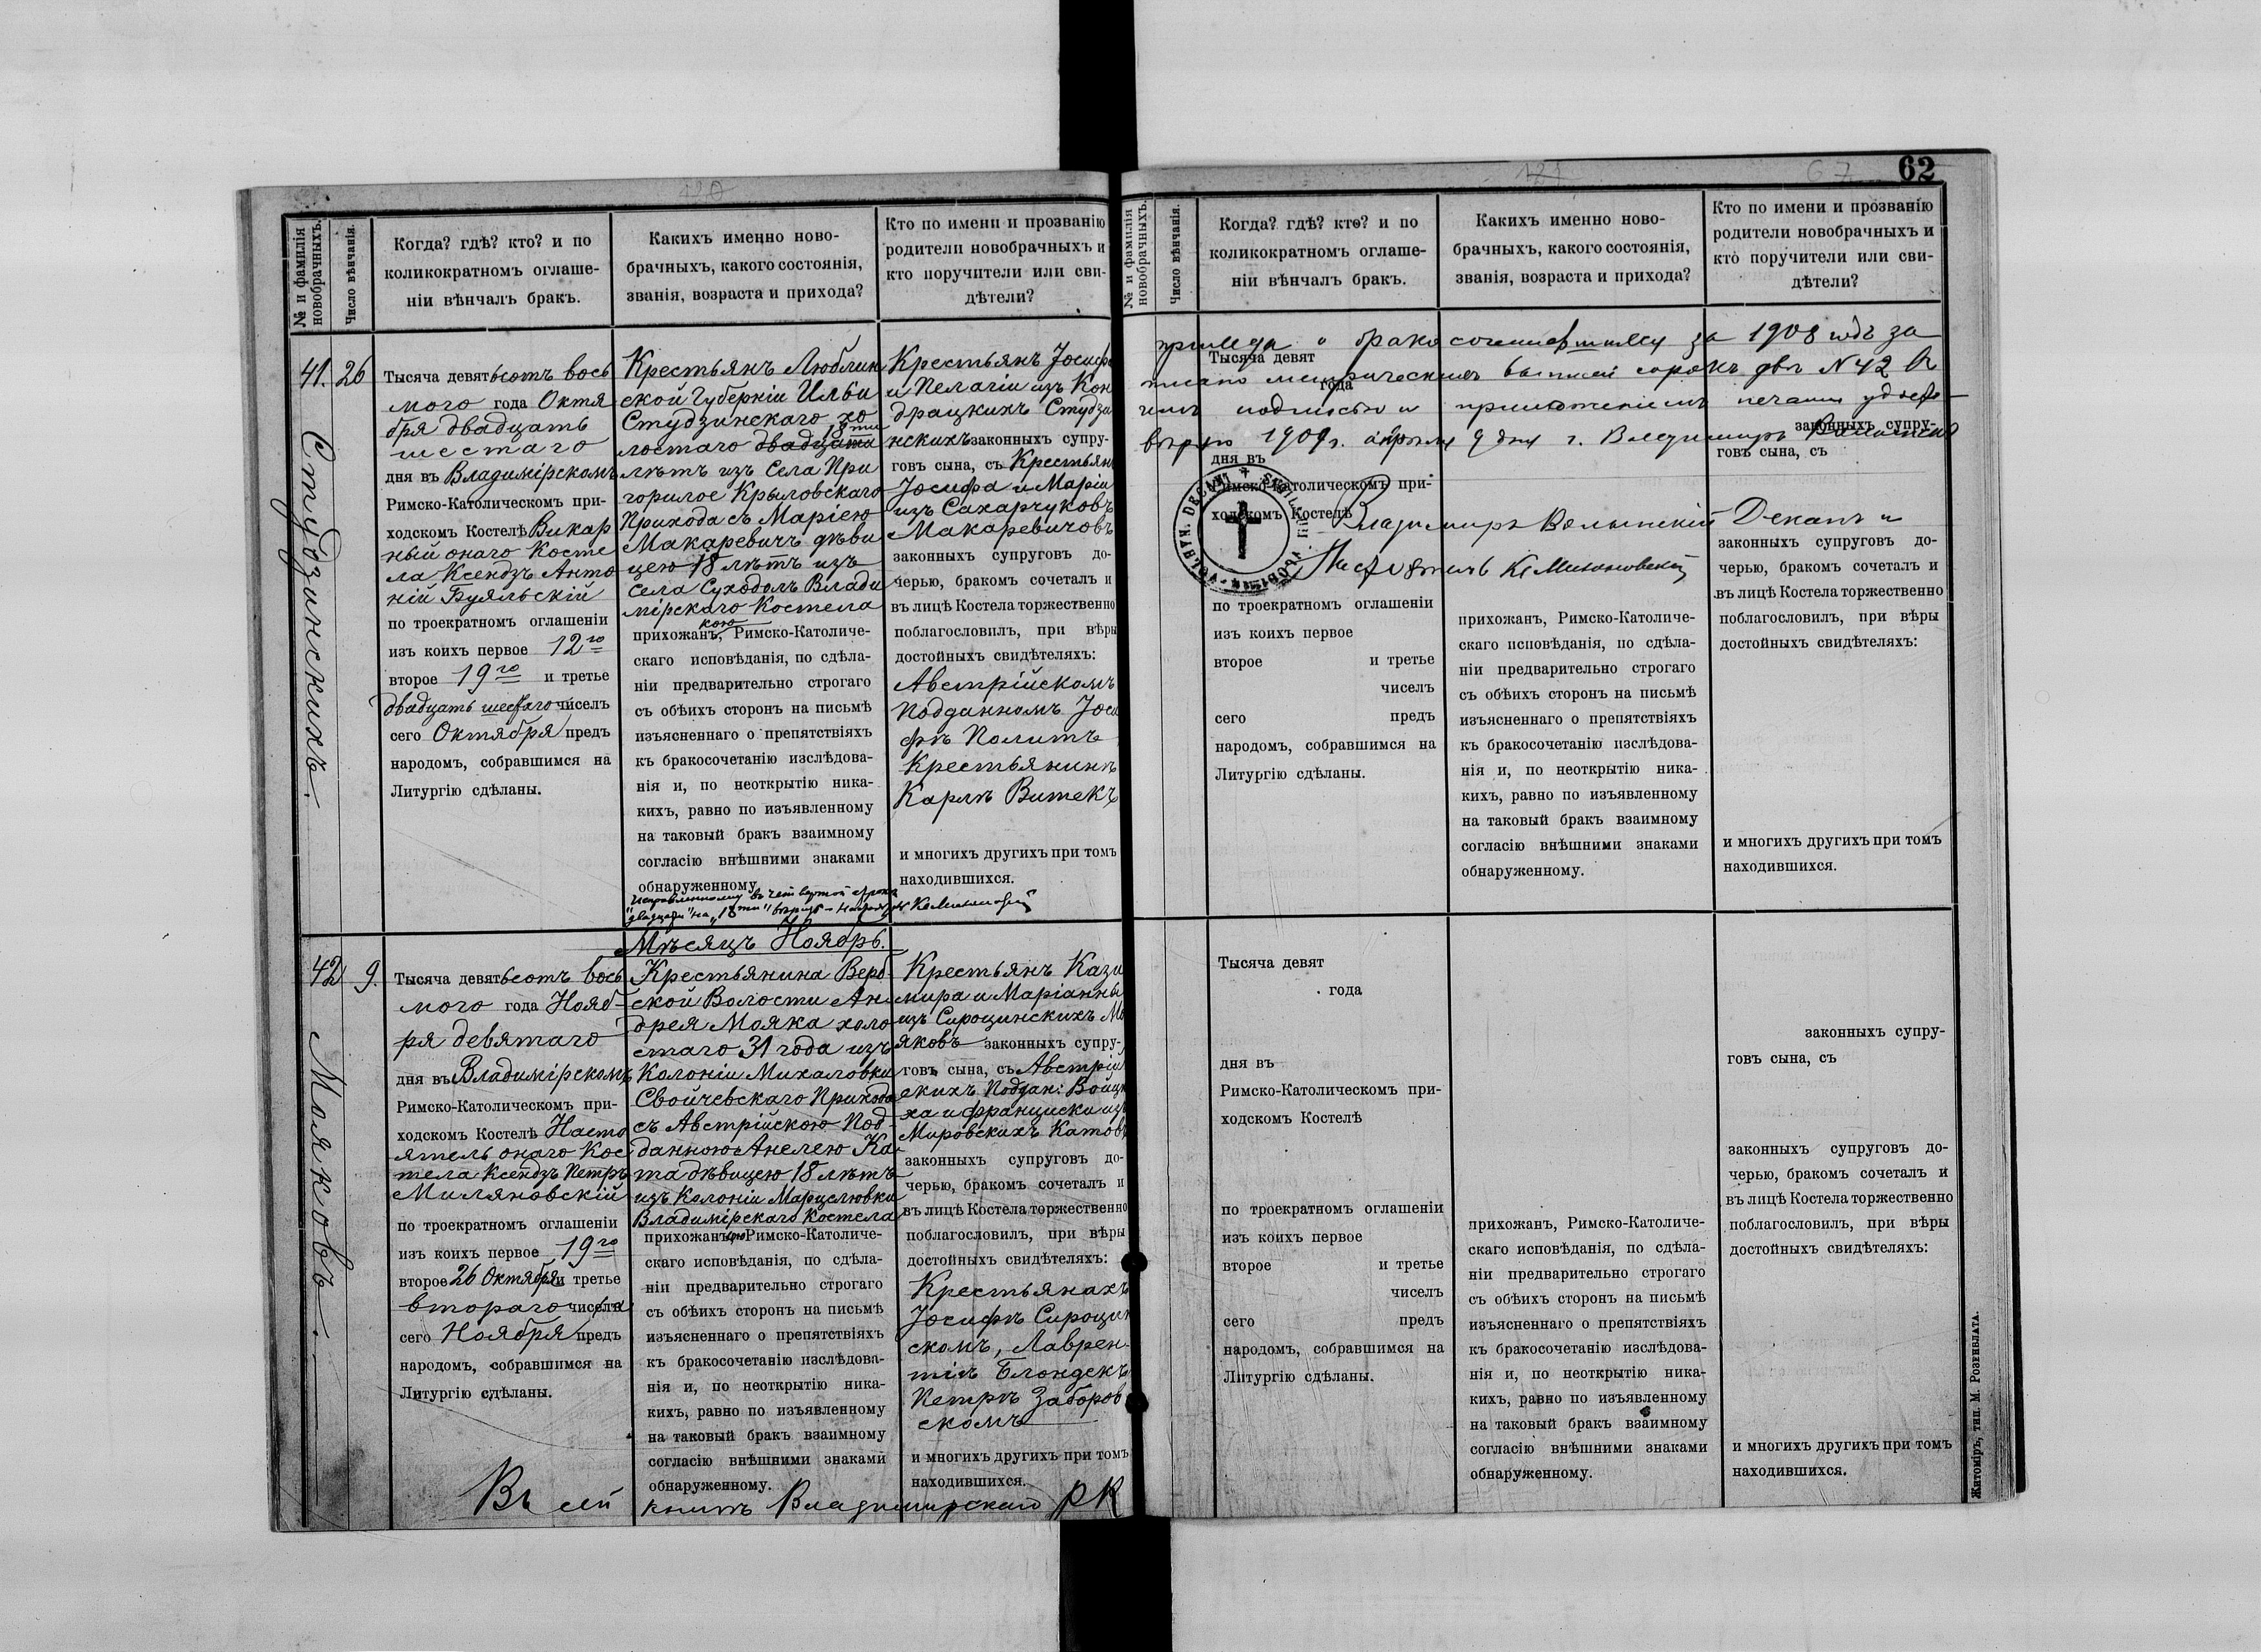 62
№ и фамилія новобрачныхъ.
Число вѣнчанія.
Когда? гдѣ? кто? и по
коликократномъ оглаше-
ніи вѣнчалъ бракъ.
Какихъ именно ново-
брачныхъ, какого состоянія,
званія, возраста и прихода?
Кто по имени и прозванію
родители новобрачныхъ и
кто поручители или сви-
дѣтели?
41.
26
Студзинскихъ.
Тысяча девятьсотъ вось
мого года Октя
бря двадцать
шестаго
дня въ Владимірскомъ
Римско-Католическомъ при-
ходскомъ Костелѣ Викар
ный онаго Косте
ла Ксендзъ Анто
ній Буяльскій
по троекратномъ оглашеніи
изъ коихъ первое 12го
второе 19го и третье
двадцать шестаго чиселъ
сего Октября предъ
народомъ, собравшимся на
Литургію сдѣланы.
Крестьянъ Люблин
ской Губерніи Ильи
Студзинскаго хо
18ти
лостаго двадцати
лѣтъ изъ Села При
горилое Крыловскаго
Прихода съ Маріею
Макаревичъ дѣви
цею 18 лѣтъ изъ
Села Суходолъ Влади
мірскаго Костела
кою
прихожанъ, Римско-Католиче-
скаго исповѣданія, по сдѣла-
ніи предварительно строгаго
съ обѣихъ сторонъ на письмѣ
изъясненнаго о препятствіяхъ
къ бракосочетанію изслѣдова-
нія и, по неоткрытію ника-
кихъ, равно по изъявленному
на таковый бракъ взаимному
согласію внѣшними знаками
обнаруженному
Исправленному въ четвертой строкѣ
"двадцати" на "18ти" вѣрить
Крестьянъ Іосифа
и Пелагіи изъ Кон
драцкихъ Студзи
нскихъ законныхъ супру-
говъ сына, съ Крестьян
Іосифа и Маріи
изъ Сахарчуковъ
Макаревичовъ
законныхъ супруговъ до-
черью, бракомъ сочеталъ и
въ лицѣ Костела торжественно
поблагословилъ, при вѣры
достойныхъ свидѣтеляхъ:
Австрійскомъ
Подданномъ Іоси
фѣ Политъ
Крестьянинѣ
Карлѣ Витекъ
и многихъ другихъ при томъ
находившихся.
Мѣсяцъ Ноябрь.
42
9.
Мояковъ.
Тысяча девятьсотъ вось
мого года Нояб-
ря девятаго
дня въ Владимірскомъ
Римско-Католическомъ при-
ходскомъ Костелѣ Насто
ятель онаго Кос
тела Ксендзъ Петръ
Миляновскій
по троекратномъ оглашеніи
изъ коихъ первое 19го
второе 26 Октября и третье
втораго числа
сего Ноября предъ
народомъ, собравшимся на
Литургію сдѣланы.
Крестьянина Верб
ской Волости Ан
дрея Мояка холо
стаго 31 года изъ
Колоніи Михаловки
Свойчевскаго Прихода
съ Австрійскою Под-
данною Анелею Ка-
та дѣвицею 18 лѣтъ
изъ Колоніи Марцелювки
Владимірскаго Костела
прихожанъ, Римско-Католиче-
скаго исповѣданія, по сдѣла-
ніи предварительно строгаго
съ обѣихъ сторонъ на письмѣ
изъясненнаго о препятствіяхъ
къ бракосочетанію изслѣдова-
нія и, по неоткрытію ника-
кихъ, равно по изъявленному
на таковый бракъ взаимному
согласію внѣшними знаками
обнаруженному.
Крестьянъ Кази
мира и Маріанны
изъ Сироцинскихъ Мо
яковъ законныхъ супру-
говъ сына, съ Австрій
скихъ Поддан: Войцѣ
ха и Франциски изъ
Мировскихъ Катовъ
законныхъ супруговъ до-
черью, бракомъ сочеталъ и
въ лицѣ Костела торжественно
поблагословилъ, при вѣры
достойныхъ свидѣтеляхъ:
Крестьянахъ
Іосифѣ Сироцин
скомъ, Лаврен-
тіѣ Блондекъ
Петрѣ Заборов
скомъ
и многихъ другихъ при томъ
находившихся.
Въ сей книгѣ Владимирскаго РК
№ и фамилія новобрачныхъ.
Число вѣнчанія.
Когда? гдѣ? кто? и по
коликократномъ оглаше-
ніи вѣнчалъ бракъ.
Какихъ именно ново-
брачныхъ, какого состоянія,
званія, возраста и прихода?
Кто по имени и прозванію
родители новобрачныхъ и
кто поручители или сви-
дѣтели?
прихода о бракосочетавшихся за 1908 годъ за
писано метрическихъ записей сорокъ два N 42 въ
чемъ подписью и приложеніемъ печати удосто-
вѣряю 1909 г. апрѣля 9 дня г. Владимиръ Волынскій
Владимиръ Волынскій Деканъ и
Настоятель Кс Миляновскій
Тысяча девят
года
дня въ
Римско-Католическомъ при-
ходскомъ Костелѣ
по троекратномъ оглашеніи
изъ коихъ первое
второе и третье
чиселъ
сего предъ
народомъ, собравшимся на
Литургію сдѣланы.
прихожанъ, Римско-Католиче-
скаго исповѣданія, по сдѣла-
ніи предварительно строгаго
съ обѣихъ сторонъ на письмѣ
изъясненнаго о препятствіяхъ
къ бракосочетанію изслѣдова-
нія и, по неоткрытію ника-
кихъ, равно по изъявленному
на таковый бракъ взаимному
согласію внѣшними знаками
обнаруженному.
законныхъ супру-
говъ сына, съ
законныхъ супруговъ до-
черью, бракомъ сочеталъ и
въ лицѣ Костела торжественно
поблагословилъ, при вѣры
достойныхъ свидѣтеляхъ:
и многихъ другихъ при томъ
находившихся.
Тысяча девят
года
дня въ
Римско-Католическомъ при-
ходскомъ Костелѣ
по троекратномъ оглашеніи
изъ коихъ первое
второе и третье
чиселъ
сего предъ
народомъ, собравшимся на
Литургію сдѣланы.
прихожанъ, Римско-Католиче-
скаго исповѣданія, по сдѣла-
ніи предварительно строгаго
съ обѣихъ сторонъ на письмѣ
изъясненнаго о препятствіяхъ
къ бракосочетанію изслѣдова-
нія и, по неоткрытію ника-
кихъ, равно по изъявленному
на таковый бракъ взаимному
согласію внѣшними знаками
обнаруженному.
законныхъ супру-
говъ сына, съ
законныхъ супруговъ до-
черью, бракомъ сочеталъ и
въ лицѣ Костела торжественно
поблагословилъ, при вѣры
достойныхъ свидѣтеляхъ:
и многихъ другихъ при томъ
находившихся.
Житоміръ, тип. М. Розенблата.